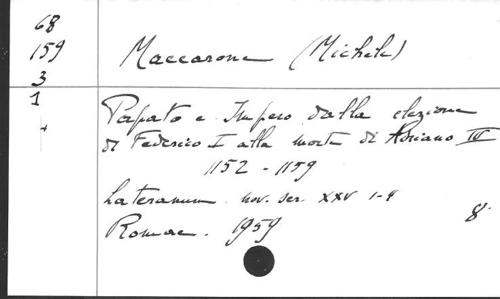 68
159
3
1
Maccarone (Michele)
Papato e Impero dalla elezione
di Federico I alla morte di Adriano IV
1152 - 1159
Lateranum nov. ser. XXV 1-4
Romae. 1959
8°